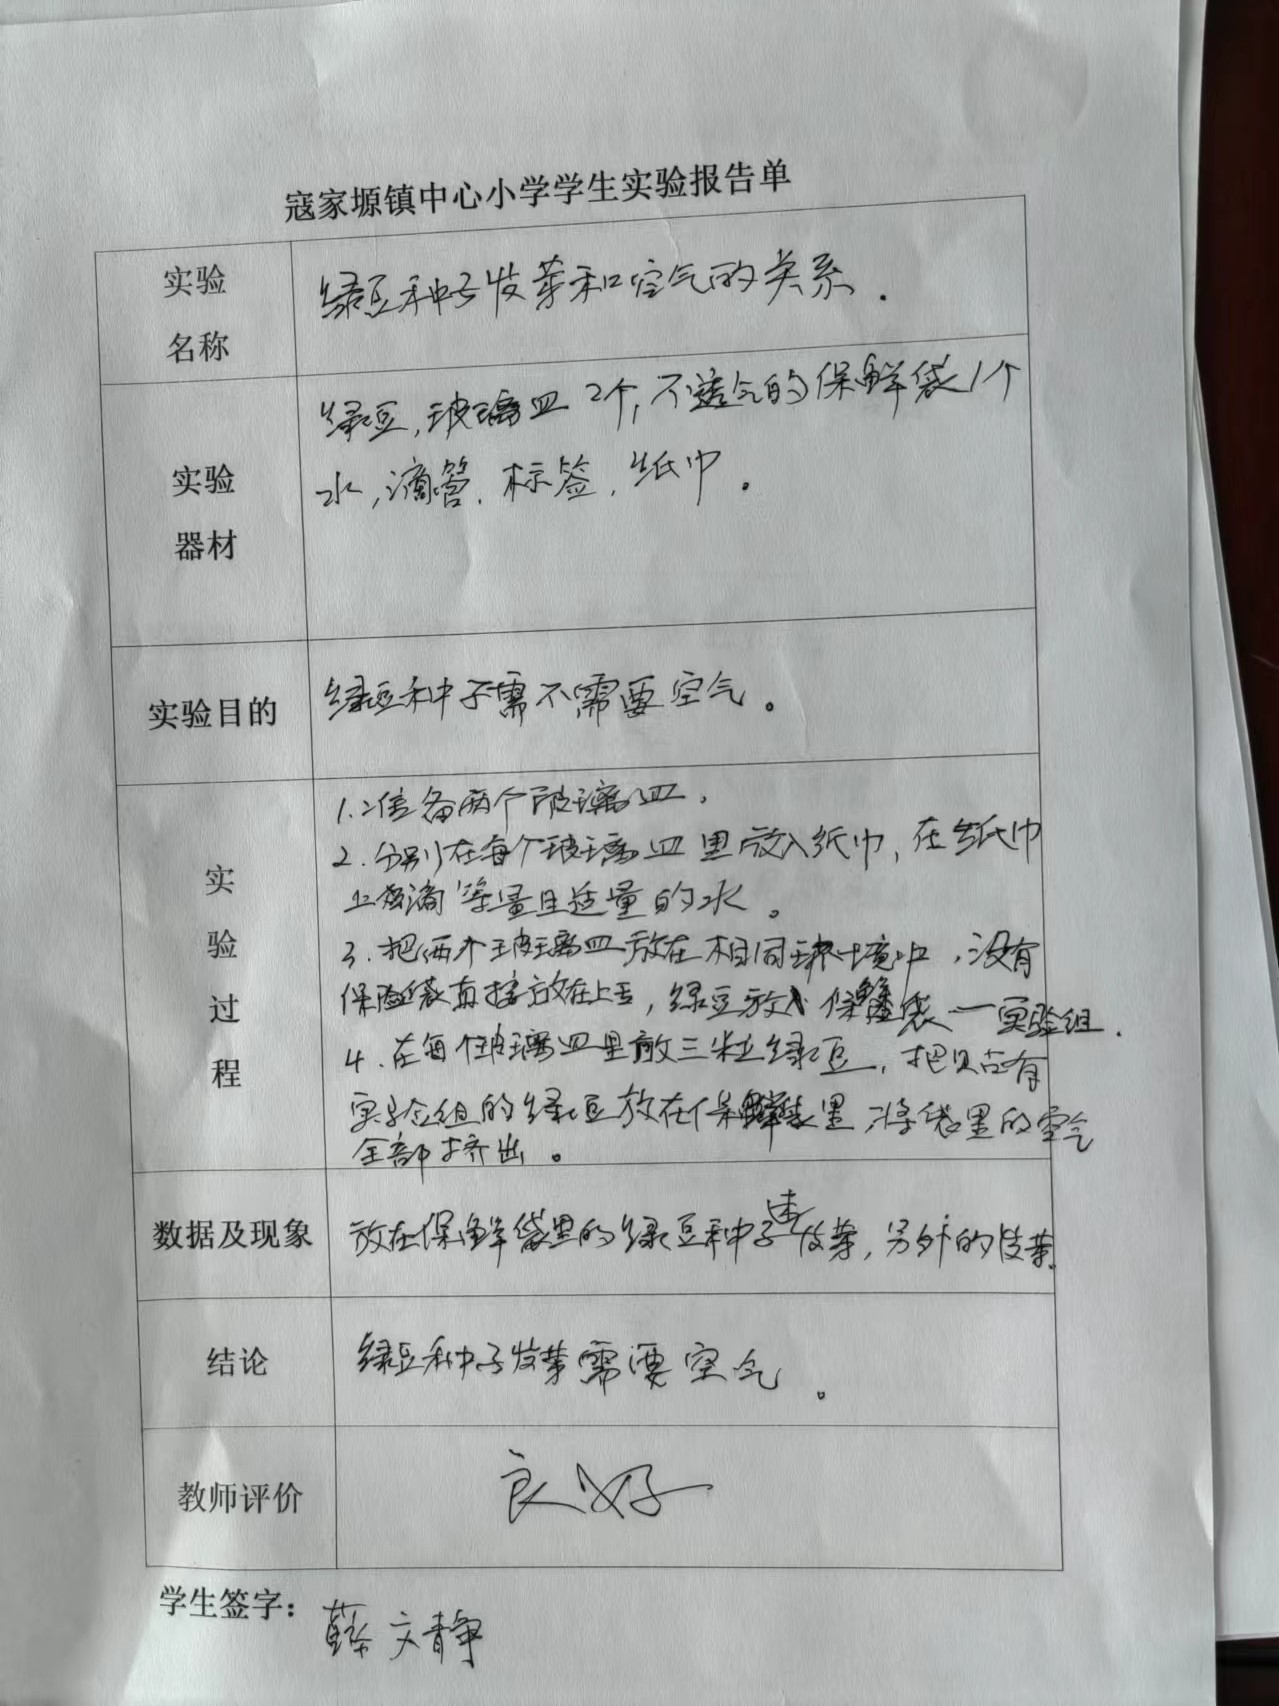 寇家塬镇中心小学学生实验报告单
实验
名称
绿豆种子发芽和空气的关系.
实验
器材
绿豆,玻璃皿2个,不透气的保鲜袋1个
水,滴管.标签,纸巾。
实验目的
绿豆种子需不需要空气。
实
验
过
程
1.准备两个玻璃皿,
2.分别在每个玻璃皿里放入纸巾,在纸巾
上滴等量且适量的水。
3.把两个玻璃皿放在相同环境中,没有
保险袋直接放在上去,绿豆放入保鲜袋一实验组.
4.在每个玻璃皿里放三粒绿豆,把贴有
实验组的绿豆放在保鲜袋里,将袋里的空气
全部挤出。
数据及现象
放在保鲜袋里的绿豆种子发芽,另外的发芽.
结论
绿豆种子发芽需要空气。
教师评价
良好
学生签字:
文静